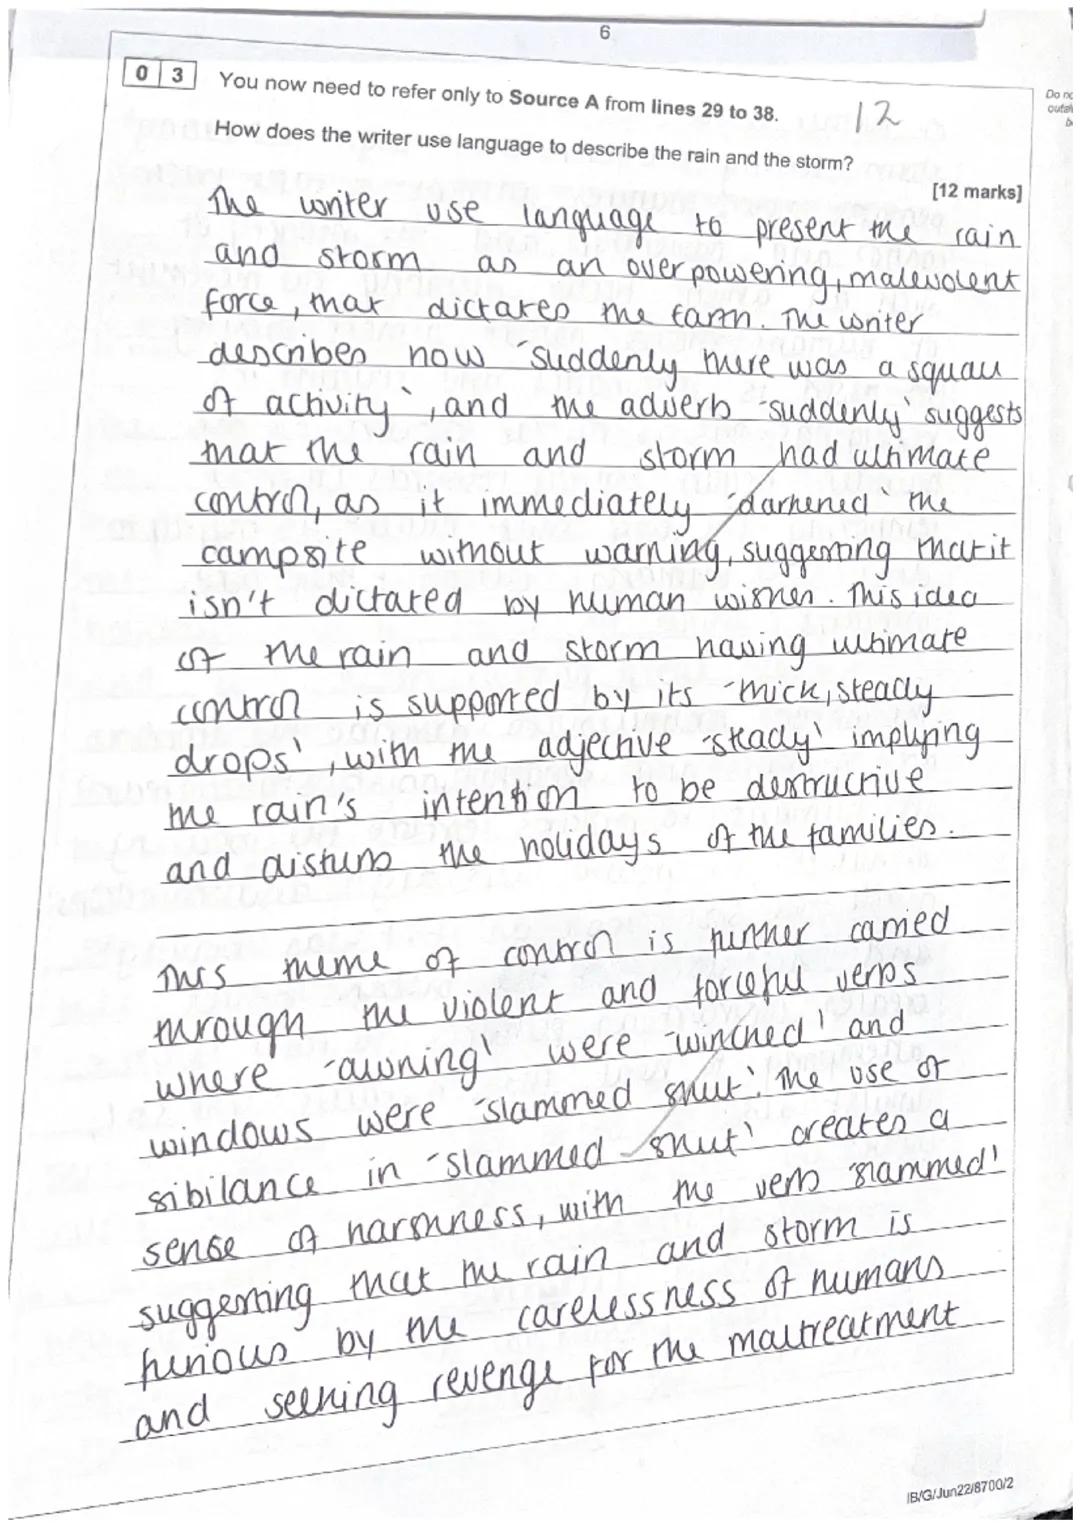 6
0 3 You now need to refer only to Source A from lines 29 to 38.
12
Do no
outsi
b
How does the writer use language to describe the rain and the storm?
[12 marks]
The writer use language to present the rain
and storm as an overpowering, malevolent
force, that dictates the Earth. The writer
describes how 'suddenly there was a squall
of activity', and the adverb 'suddenly' suggests
that the rain and storm had ultimate
control, as it immediately 'darkened' the
campsite without warning, suggesting that it
isn't dictated by human wishes. This idea
of the rain and storm having ultimate
control is supported by its 'thick, steady
drops', with the adjective 'steady' implying
the rain's intention to be destructive
and disturb the holidays of the families.
This theme of control is further carried
through the violent and forceful verbs
where 'awning' were 'winched' and
windows were 'slammed shut'. The use of
sibilance in 'slammed shut' creates a
sense of harshness, with the verb 'slammed'
suggesting that the rain and storm is
furious by the carelessness of humans
and seeking revenge for the maltreatment
IB/G/Jun22/8700/2